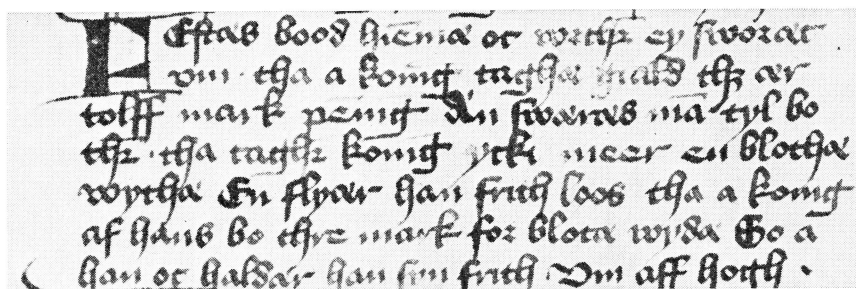 FEstæs bood hiēmæ oc worthr ey sworæt
vm · tha a konīg taghæ giald thz ær
tolff mark pēnīg En swæræs mā tyl bo
thr · tha taghr konīg ycki meer en blothæ
wythæ En flyær han frith loos tha a konīg
af hans bo thre mark for blotæ wydæ So a
han oc haldær han sin frith · Vm aff hogh ·